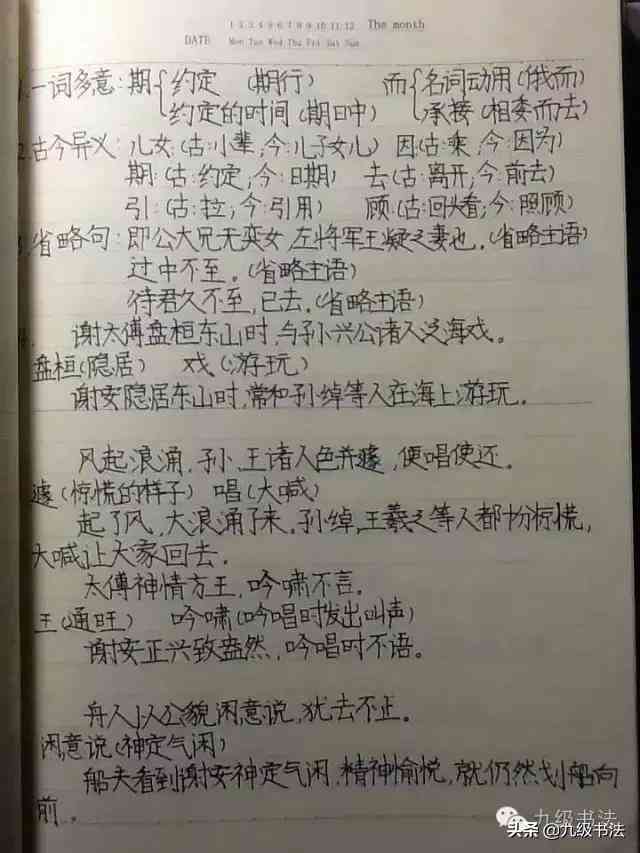 1 2 3 4 5 6 7 8 9 10 11 12 The month
DATE Mon Tue Wed Thu Fri Sat Sun
1.一词多意:期{约定 (期行) 而{名词动用(俄而)
约定的时间(期日中) 承接(相委而去)
2.古今异义:儿女(古:小辈,今:儿子女儿) 因(古:乘,今:因为)
期(古:约定,今:日期) 去(古:离开,今:前去)
引:(古:拉,今:引用) 顾:(古:回头看,今:照顾)
3.省略句:即公大兄无奕女,左将军王凝之妻也。(省略主语)
过中不至。(省略主语)
待君久不至,已去。(省略主语)
谢太傅盘桓东山时,与孙兴公诸人泛海戏。
盘桓(隐居) 戏(游玩)
谢安隐居东山时,常和孙绰等人在海上游玩。
风起浪涌,孙、王诸人色并遽,便唱使还。
遽(惊慌的样子) 唱(大喊)
起了风,大浪涌了来。孙绰,王羲之等人都扮惊慌,
大喊让大家回去。
太傅神情方王,吟啸不言。
王(通旺) 吟啸(吟唱时发出叫声)
谢安正兴致盎然,吟唱时不语。
舟人以公貌闲意说,犹去不止。
闲意说(神定气闲)
船夫看到谢安神定气闲,精神愉悦,就仍然划船向
前。
九级书法
头条@九级书法